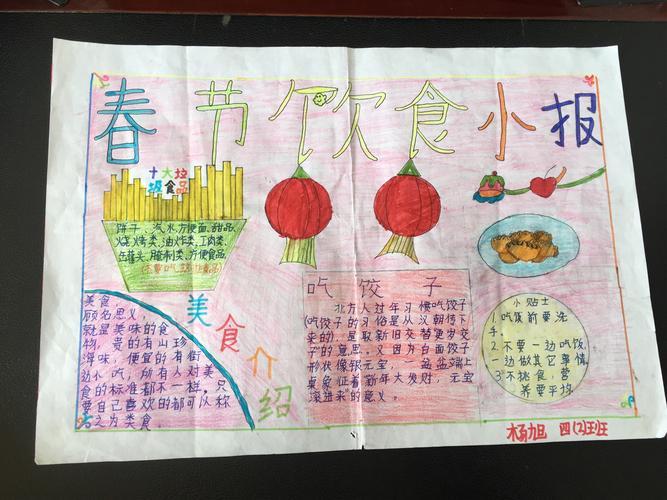 春节饮食小报
十大垃
圾食品
饼干、汽水、方便面、甜品、
烧烤类、油炸类、工肉类、
缶罐头、腌制类、方便食品。
美食介绍
美食
顾名思义,
就是美味的食
物,贵的有山珍
海味,便宜的有街
边小吃,所有人对美
食的标准都不一样。只
要自己喜欢的都可以称
之为美食。
吃饺子
北方人过年习惯吃饺子
(吃饺子的习俗是从汉朝传下
来的),是取新旧交替更岁交
子的意思。又因为白面饺子
形状像银元宝,一盆盆端上
桌象征着新年大发财,元宝
滚进来"的意义。
小贴士
1.吃饭前要洗
手。
2.不要一边吃饭,
一边做其它事情。
3.不挑食,营
养要平均。
杨旭 四(2)班